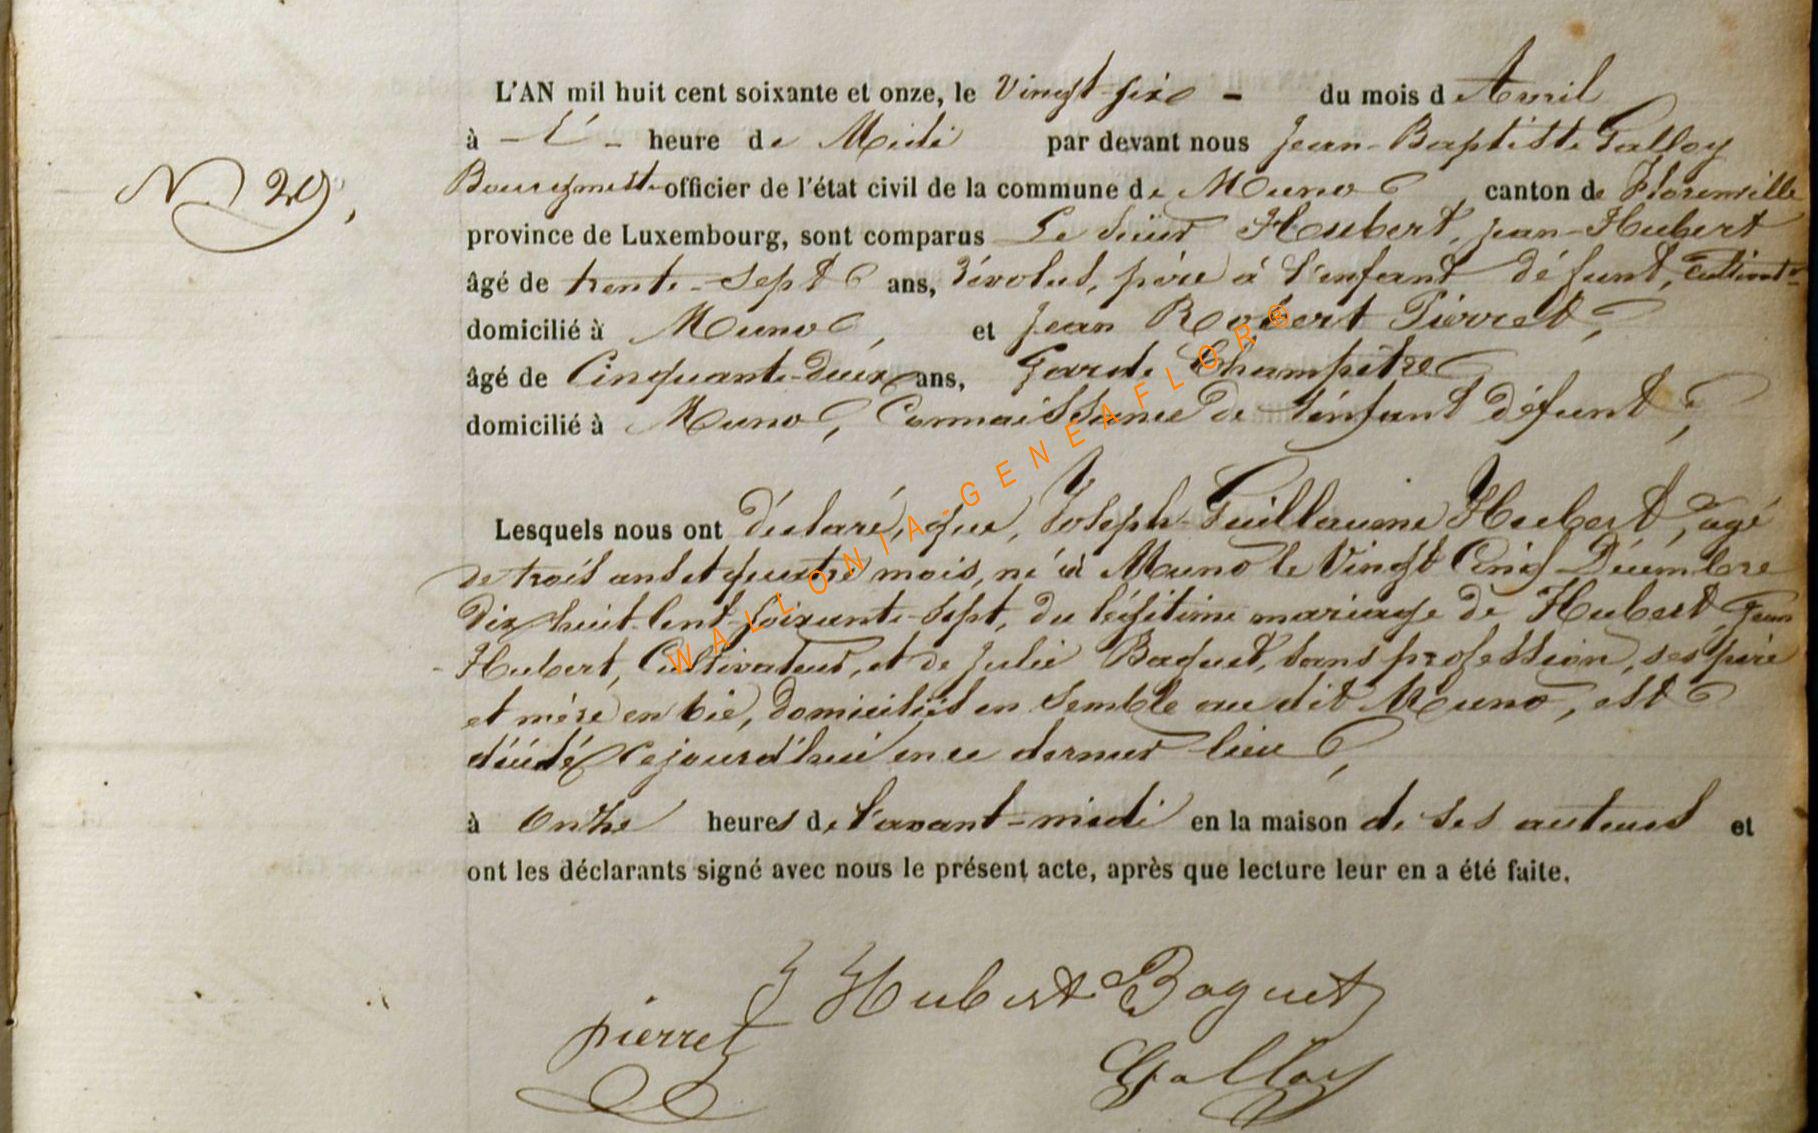 L'AN mil huit cent soixante et onze, le Vingt-six - du mois d'Avril
à - L' - heure de Midi par devant nous Jean-Baptiste Galloy
N. 29, Bourgmestre officier de l'état civil de la commune de Muno canton de Florenville
province de Luxembourg, sont comparus Le sieur Hubert, Jean-Hubert
âgé de trente-sept ans, révolus, père à l'enfant défunt, Cultivatr
domicilié à Muno, et Jean Robert Pierret,
âgé de Cinquante-deux ans, Garde Champêtre
domicilié à Muno, Connaissance de l'enfant défunt,
Lesquels nous ont déclaré, que, Joseph-Guillaume Hubert, âgé
de trois ans et quatre mois, né à Muno le Vingt Cinq Décembre
dix huit-Cent-soixante-sept, du légitime mariage de Hubert, Jean
Hubert, Cultivateur, et de Julie Baquet, sans profession, ses père
et mère en vie, domiciliés en semble au dit Muno, est
décédé cejourd'hui en ce dernier lieu,
à Onze heures de l'avant-midi en la maison de ses auteurs et
ont les déclarants signé avec nous le présent acte, après que lecture leur en a été faite.
J J Hubert Baquet
pierret
Galloy
WALLONIA-GENEAFLOR®